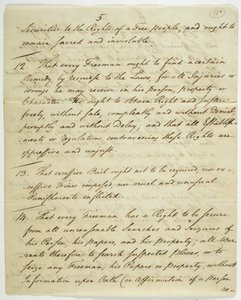 5
Securities to the Rights of a Free People, and ought to
remain sacred and inviolable
12. That every Freeman ought to find a certain
Remedy, by recourse to the Laws, for all Injuries or
wrongs he may receive in his person, property or
Character. He ought to obtain Right and Justice
freely, without sale, compleatly and without Denial,
promptly and without Delay, and that all Establish-
ments or regulations, contravening these Rights are
oppressive and unjust.
13. That excessive Bail ought not to be required, nor ex-
cessive Fines imposed, nor cruel and unusual
Punishments inflicted.
14. That every Freeman has a Right to be secure
from all unreasonable Searches and Seizures of
his Person, his Papers, and his Property; all War-
rants therefore to search suspected Places, or to
seize any Freeman, his Papers or Property, without
Information upon Oath (or Affirmation of a Person